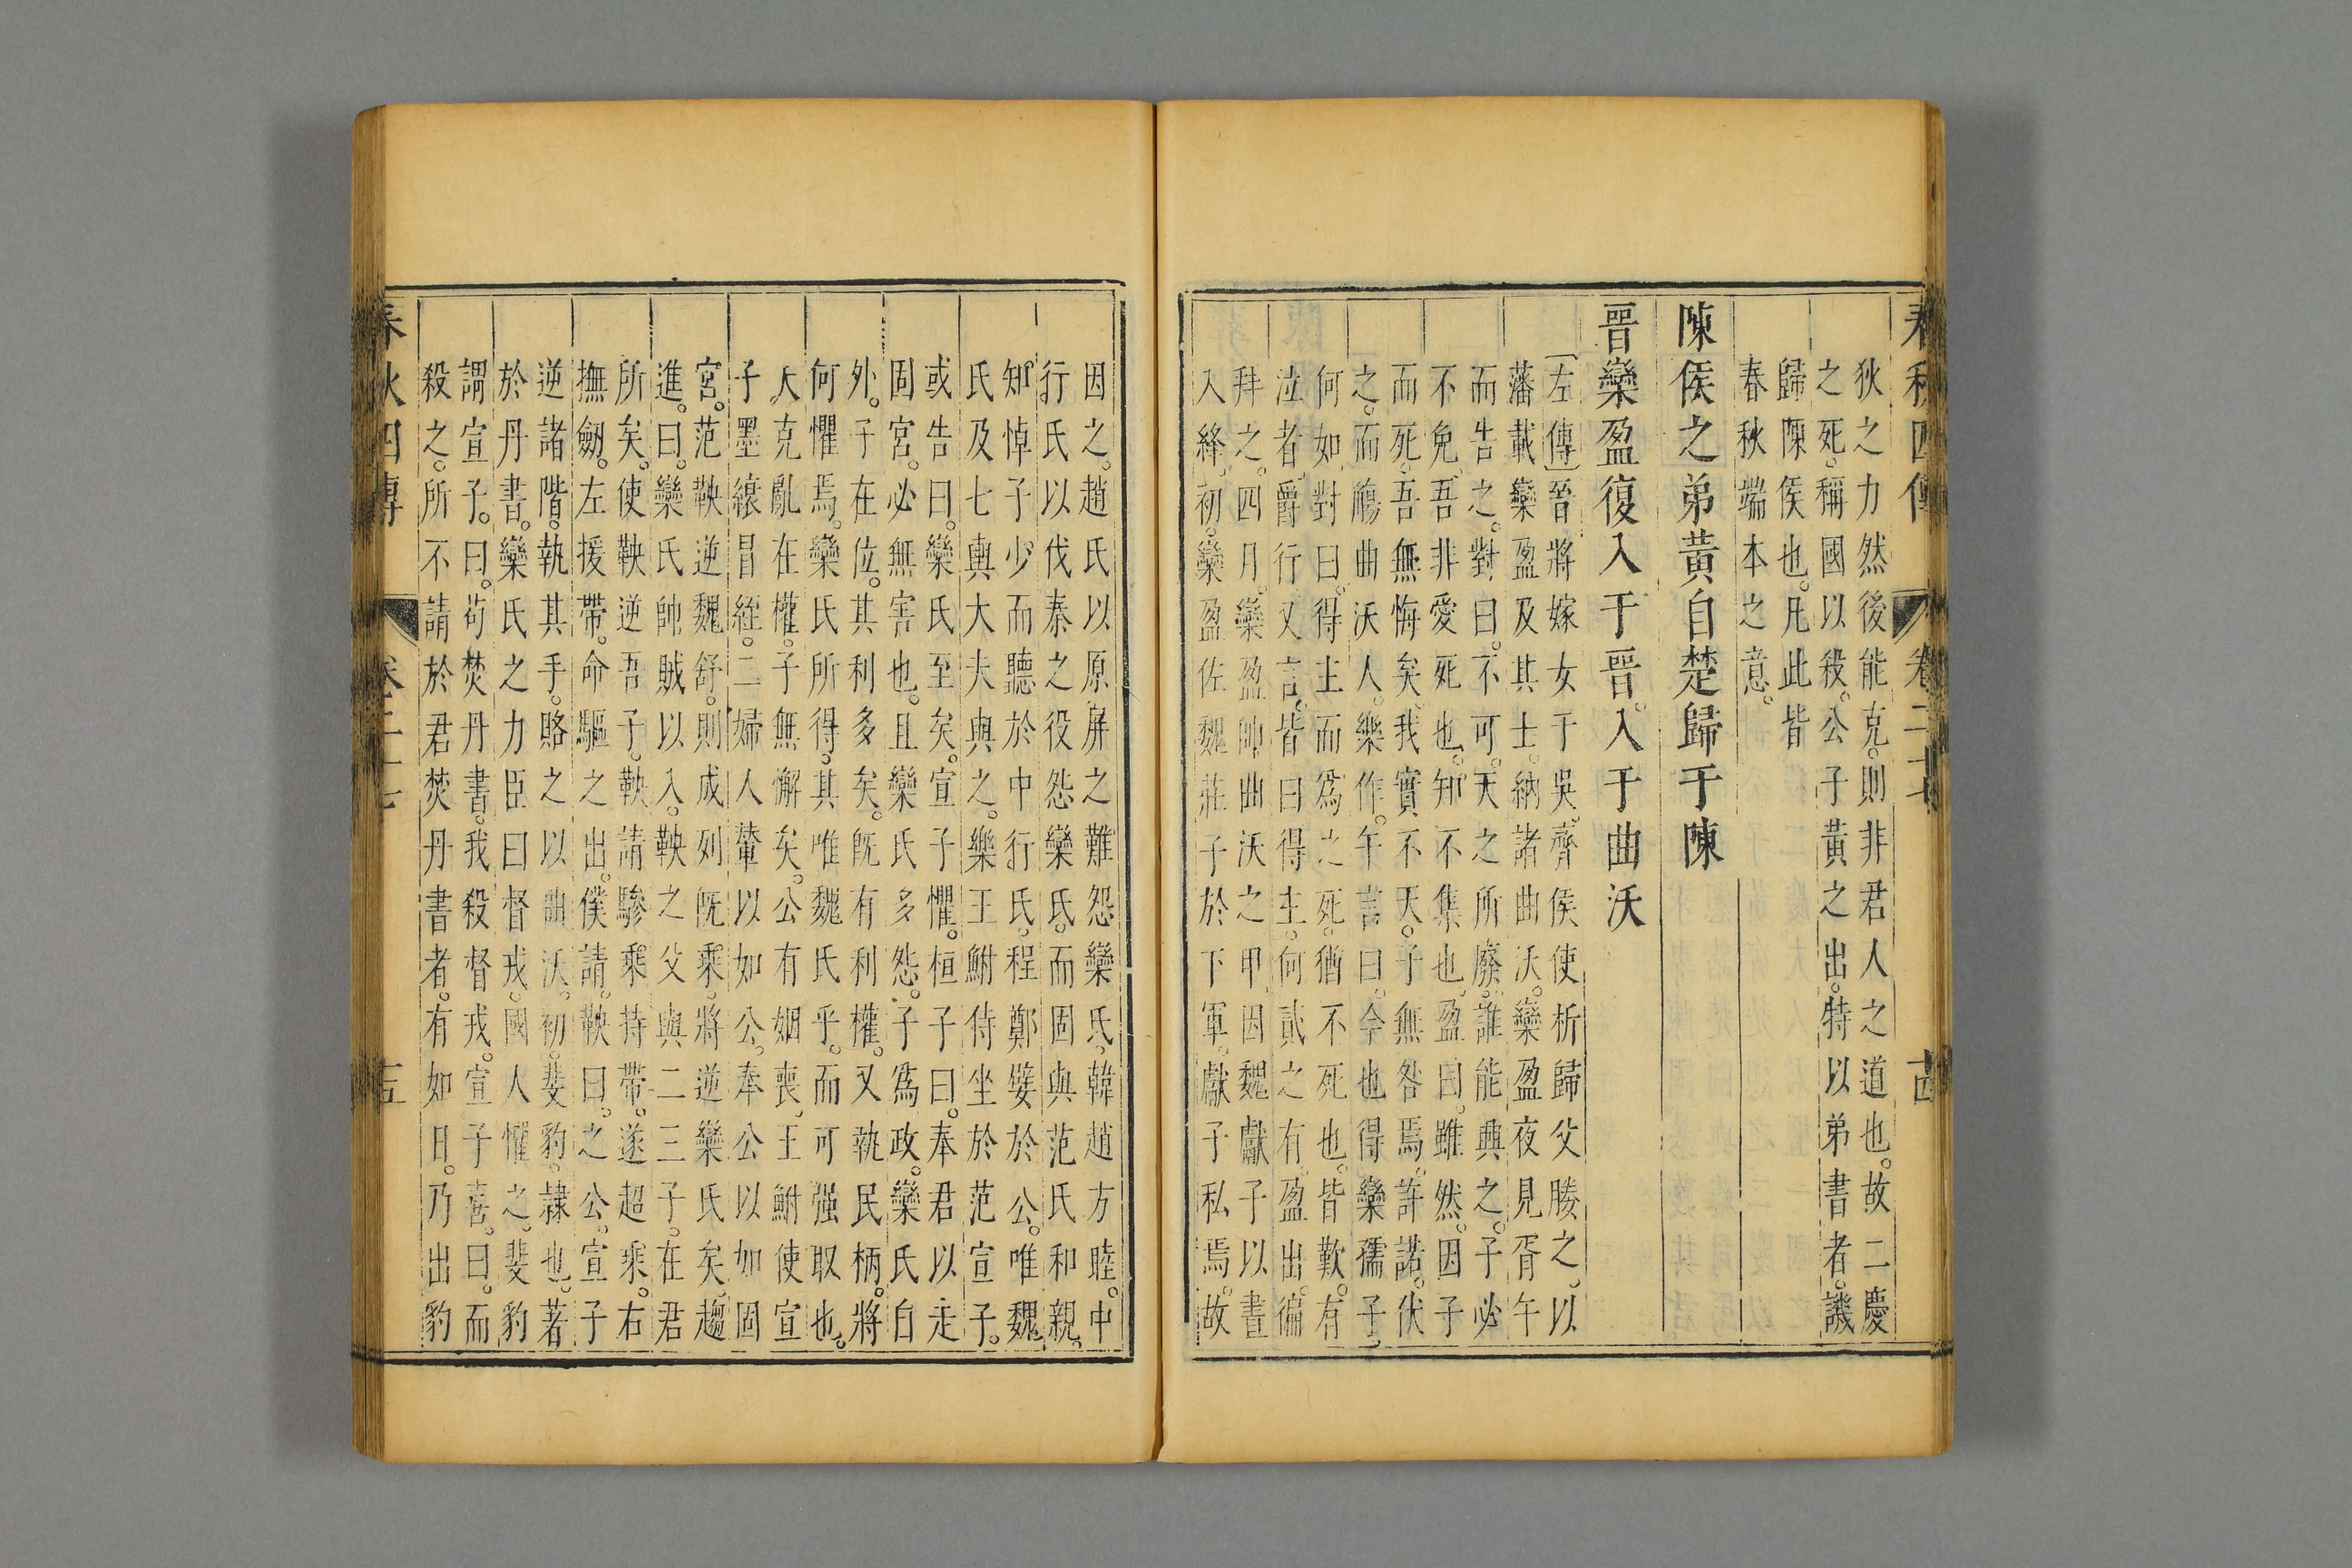 春秋四傳 卷二十七 十四
狄之力然後能克。則非君人之道也。故二慶
之死。稱國以殺。公子黃之出。特以弟書者。譏
歸陳侯也。凡此皆
春秋端本之意。
陳侯之弟黃自楚歸于陳
晉欒盈復入于晉入于曲沃
左傳晉將嫁女于吳。齊侯使析歸父媵之。以
藩載欒盈及其士。納諸曲沃。欒盈夜見胥午
而告之。對曰。不可。天之所廢。誰能興之。子必
不免。吾非愛死也。知不集也。盈曰。雖然。因子
而死。吾無悔矣。我實不天。子無咎焉。許諾。伏
之。而觴曲沃人。樂作。午言曰。今也得欒孺子。
何如。對曰。得主而爲之死。猶不死也。皆歎。有
泣者。爵行。又言。皆曰。得主。何貳之有。盈出。徧
拜之。四月。欒盈帥曲沃之甲。因魏獻子以晝
入絳。初。欒盈佐魏莊子於下軍。獻子私焉。故
因之。趙氏以原屏之難怨欒氏。韓趙方睦。中
行氏以伐秦之役怨欒氏。而固與范氏和親。
知悼子少。而聽於中行氏。程鄭嬖於公。唯魏
氏及七輿大夫與之。樂王鮒侍坐於范宣子。
或告曰。欒氏至矣。宣子懼。桓子曰。奉君以走
固宮。必無害也。且欒氏多怨。子爲政。欒氏自
外。子在位。其利多矣。既有利權。又執民柄。將
何懼焉。欒氏所得。其唯魏氏乎。而可强取也。
夫克亂在權。子無懈矣。公有姻喪。王鮒使宣
子墨縗冒絰。二婦人輦以如公。奉公以如固
宮。范鞅逆魏舒。則成列既乘。將逆欒氏矣。趨
進。曰。欒氏帥賊以入。鞅之父與二三子。在君
所矣。使鞅逆吾子。鞅請驂乘持帶。遂超乘。右
撫劒。左援帶。命驅之出。僕請。鞅曰。之公。宣子
逆諸階。執其手。賂之以曲沃。初。斐豹。隸也。著
於丹書。欒氏之力臣曰督戎。國人懼之。斐豹
謂宣子。曰。苟焚丹書。我殺督戎。宣子喜。曰。而
殺之。所不請於君焚丹書者。有如日。乃出豹
春秋四傳 卷二十七 十五